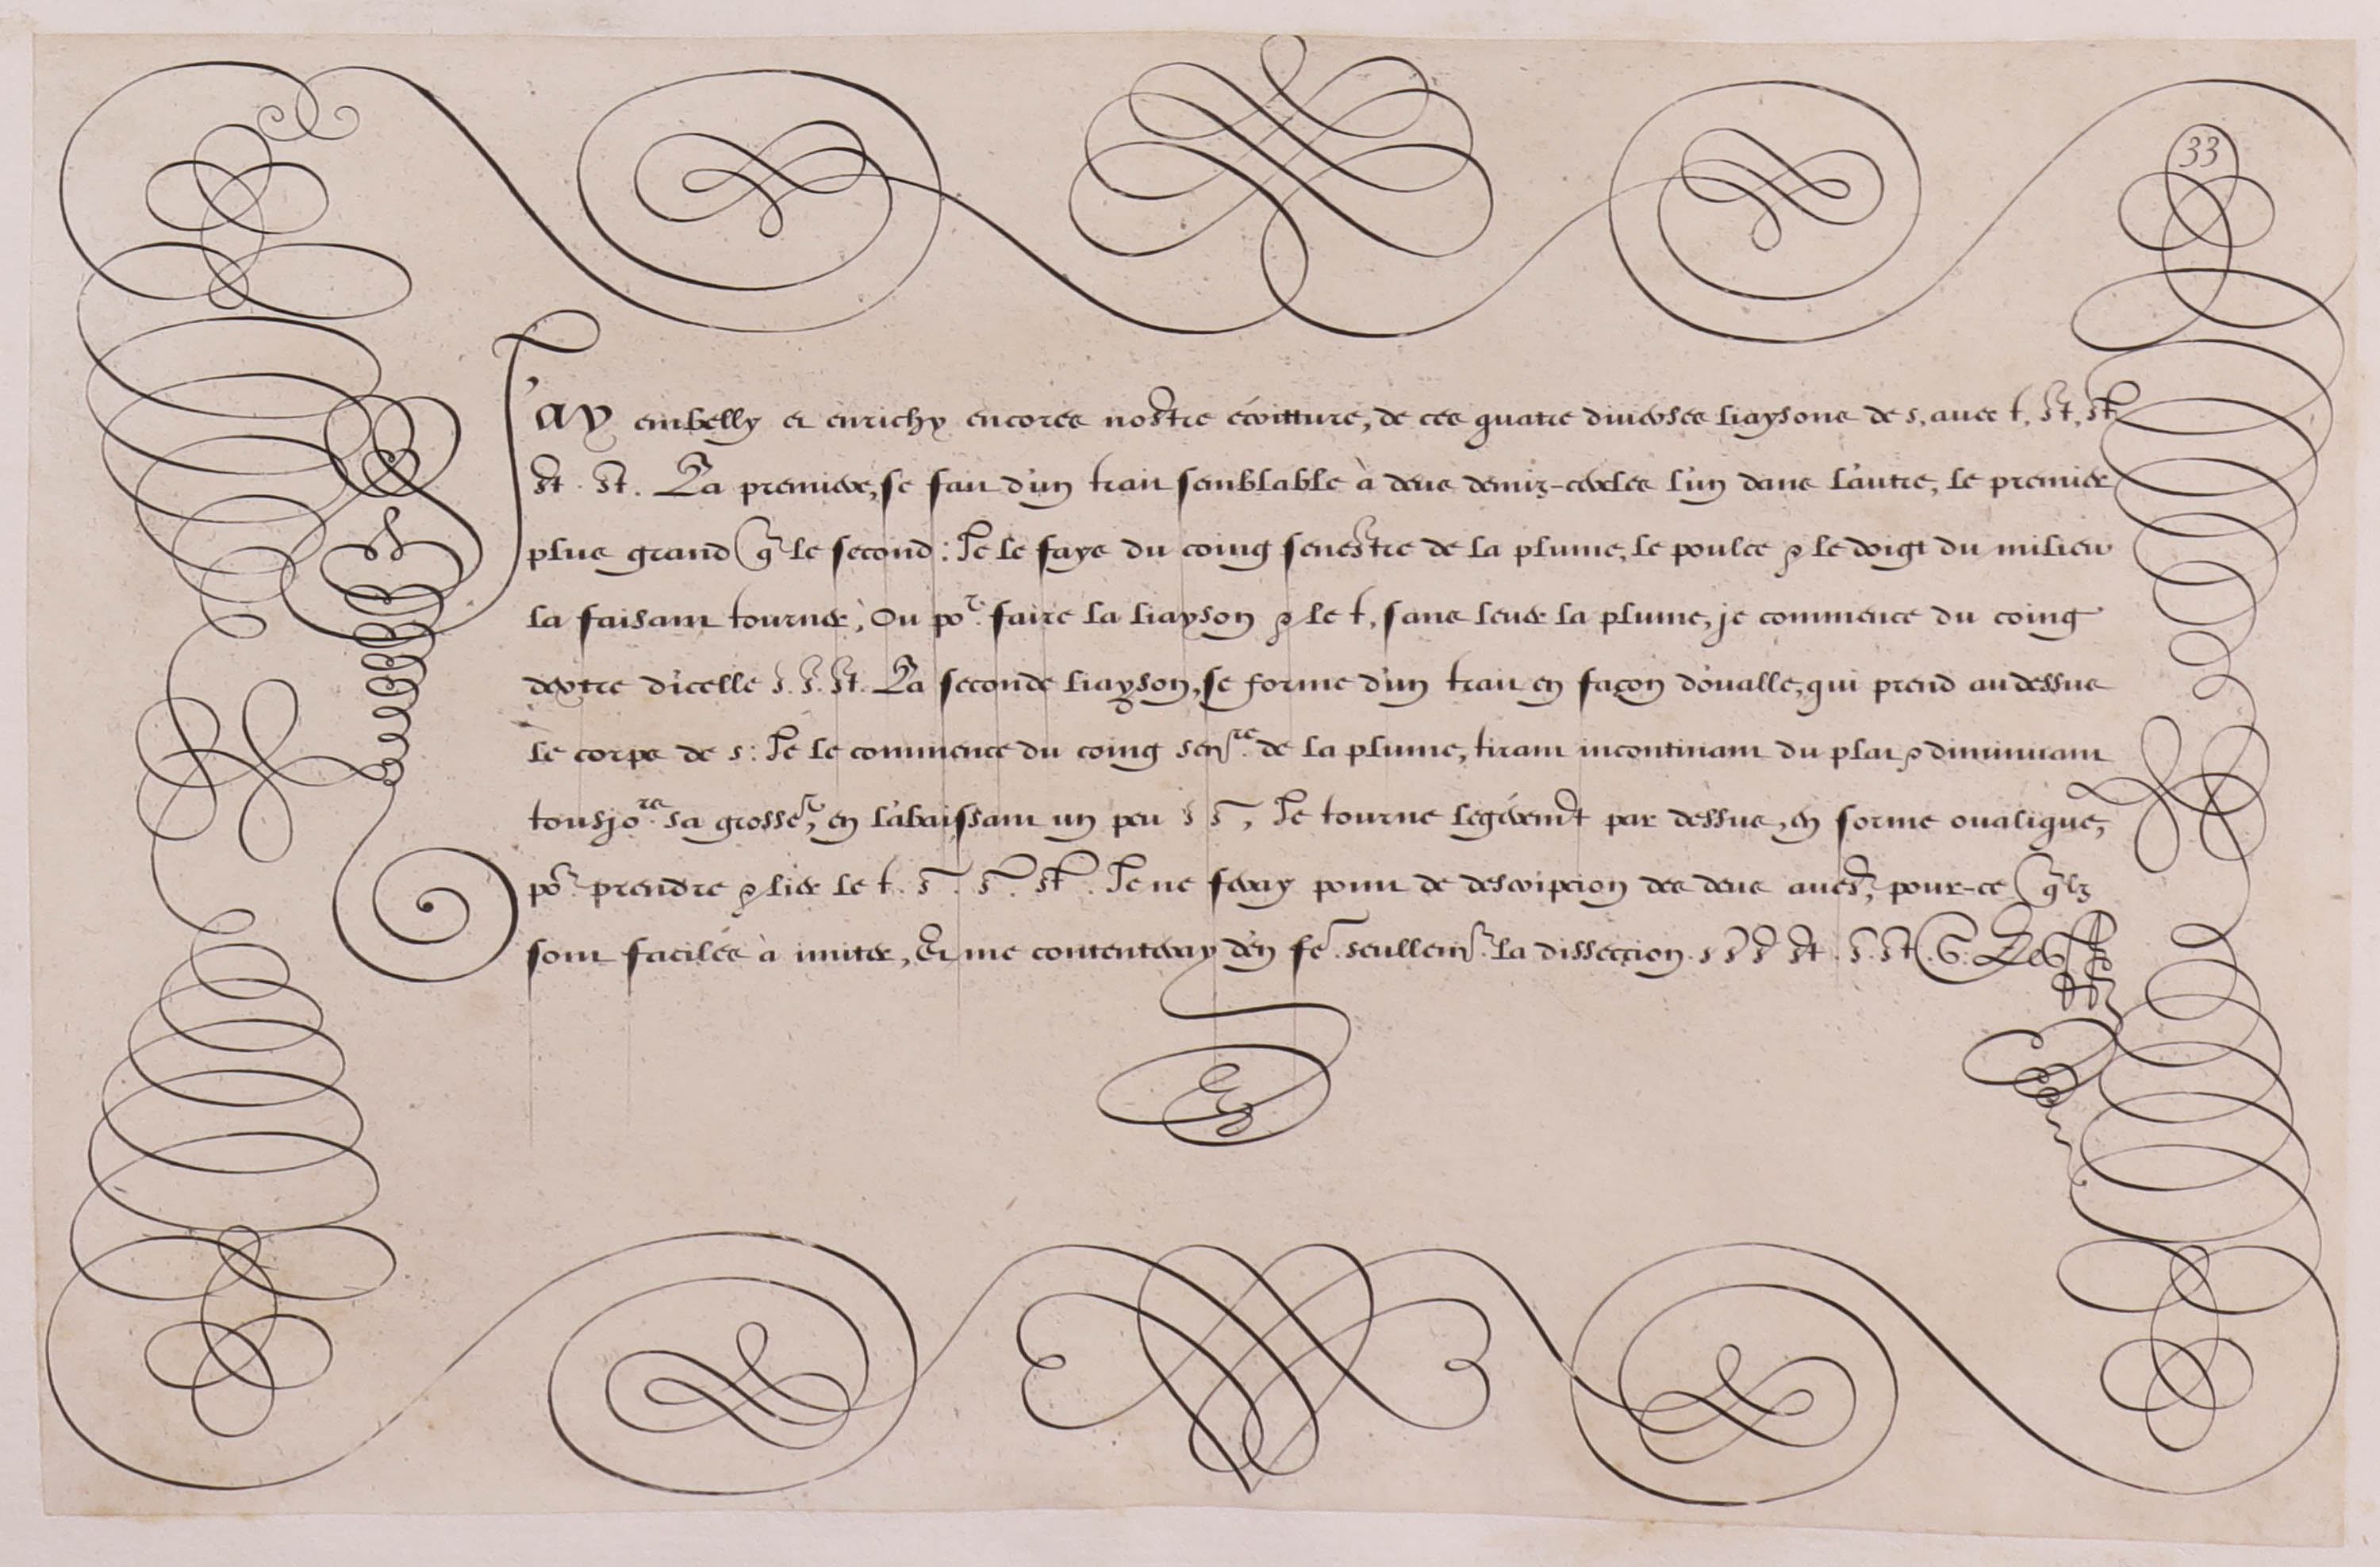 33
J'ay embelly et enrichy encores nostre écriture, de ces quatre diverses liaysons de s, avec t, st, st
st. st. La premiere, se fait d'un trait semblable à deus demiz-cercles l'un dans l'autre, le premier
plus grand q̃ le second: Je le fays du coing senestre de la plume, le poulce & le doigt du milieu
la faisant tourner, Ou poʳ. faire la liayson & le t, sans lever la plume, je commence du coing
dextre d'icelle s. s. st. La seconde liayson, se forme d'un trait en façon d'ovalle, qui prend au dessus
le corps de s: Je le commence du coing senᵗʳᵉ. de la plume, tirant incontinant du plat & diminuant
tousjoʳˢ. sa grosseʳ, en l'abaissant un peu s s, Je tourne legéremt par dessus, en forme ovalique,
poʳ prendre & lier le t. s. s. st. Je ne feray point de descripcion des deus auᵗʳᵉˢ, pour-ce q̃lz
sont faciles à imiter, Et me contenteray d'en feʳ. seullemᵗ. la dissection. s s s st. s. st. G. Le G